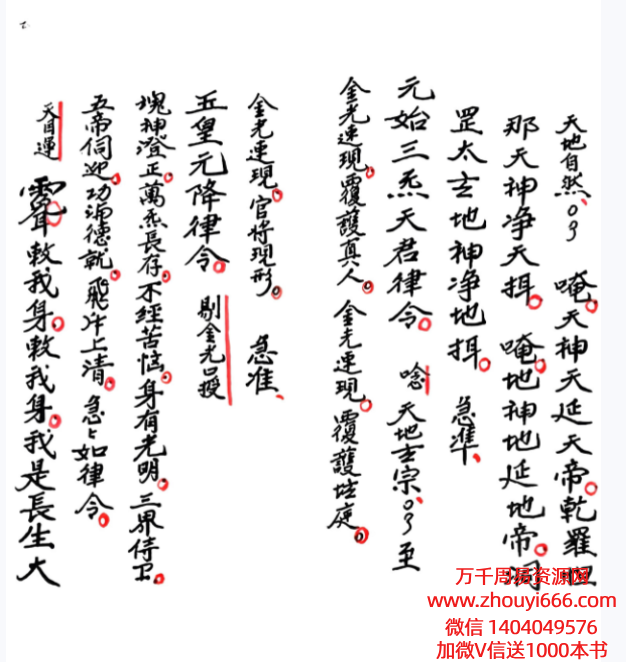 天地自然、〇〇 唵。天神天延天帝。乾羅恒
那天神净天揖。唵。地神地延地帝。洞
罡太玄地神净地揖。 急準、
元始三炁天君律令。 唸 天地玄宗、〇〇至
金光速現。覆護真人。金光速現。覆護壇庭。
金光速現。官将現形。 急准、
五皇元降律令。 剔金光吕授
魂神澄正。萬炁長存。不經苦惱。身有光明。三界侍卫。
五帝伺迎。功滿德就。飛升上清。急々如律令。
天目運 敕我身。敕我身。我是長生大
万千周易资源网
www.zhouyi666.com
微信 1404049576
加微V信送1000本书